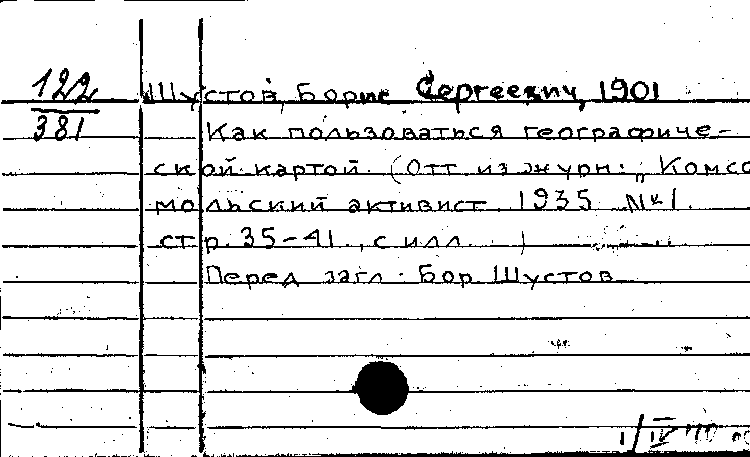 122 Шустов, Борис Сергеевич, 1901
381 Как пользоваться географиче-
ской картой. (Отт. из журн.: „Комсо
мольский активист 1935 №1.
стр. 35-41., с илл. )
Перед загл. Бор. Шустов